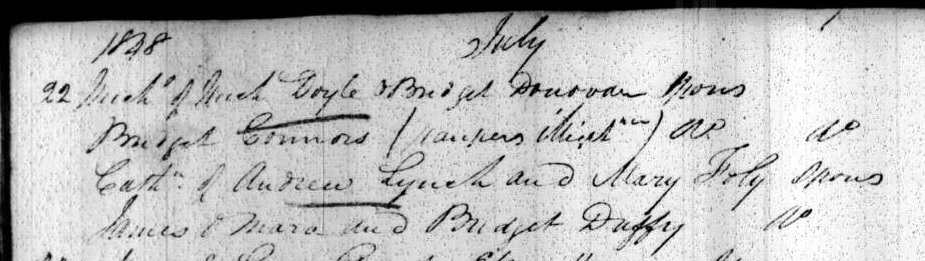 1848 July
22 Mich^l of Mich^l Doyle & Bridget Donovan Spons
Bridget Connors (paupers Do Do
Cath^n of Andrew Lynch and Mary Foly Spons
James O Mara and Bridget Duffy Do